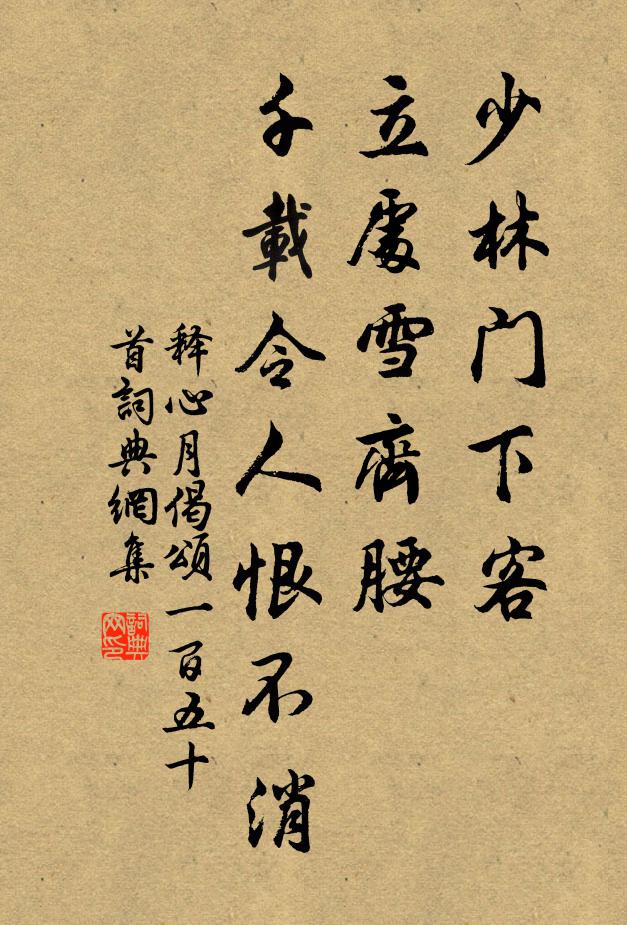 少林門下客
立處雪齊腰
千載令人恨不消
释心月偈頌一百五十
首詞典網集
詞典網印